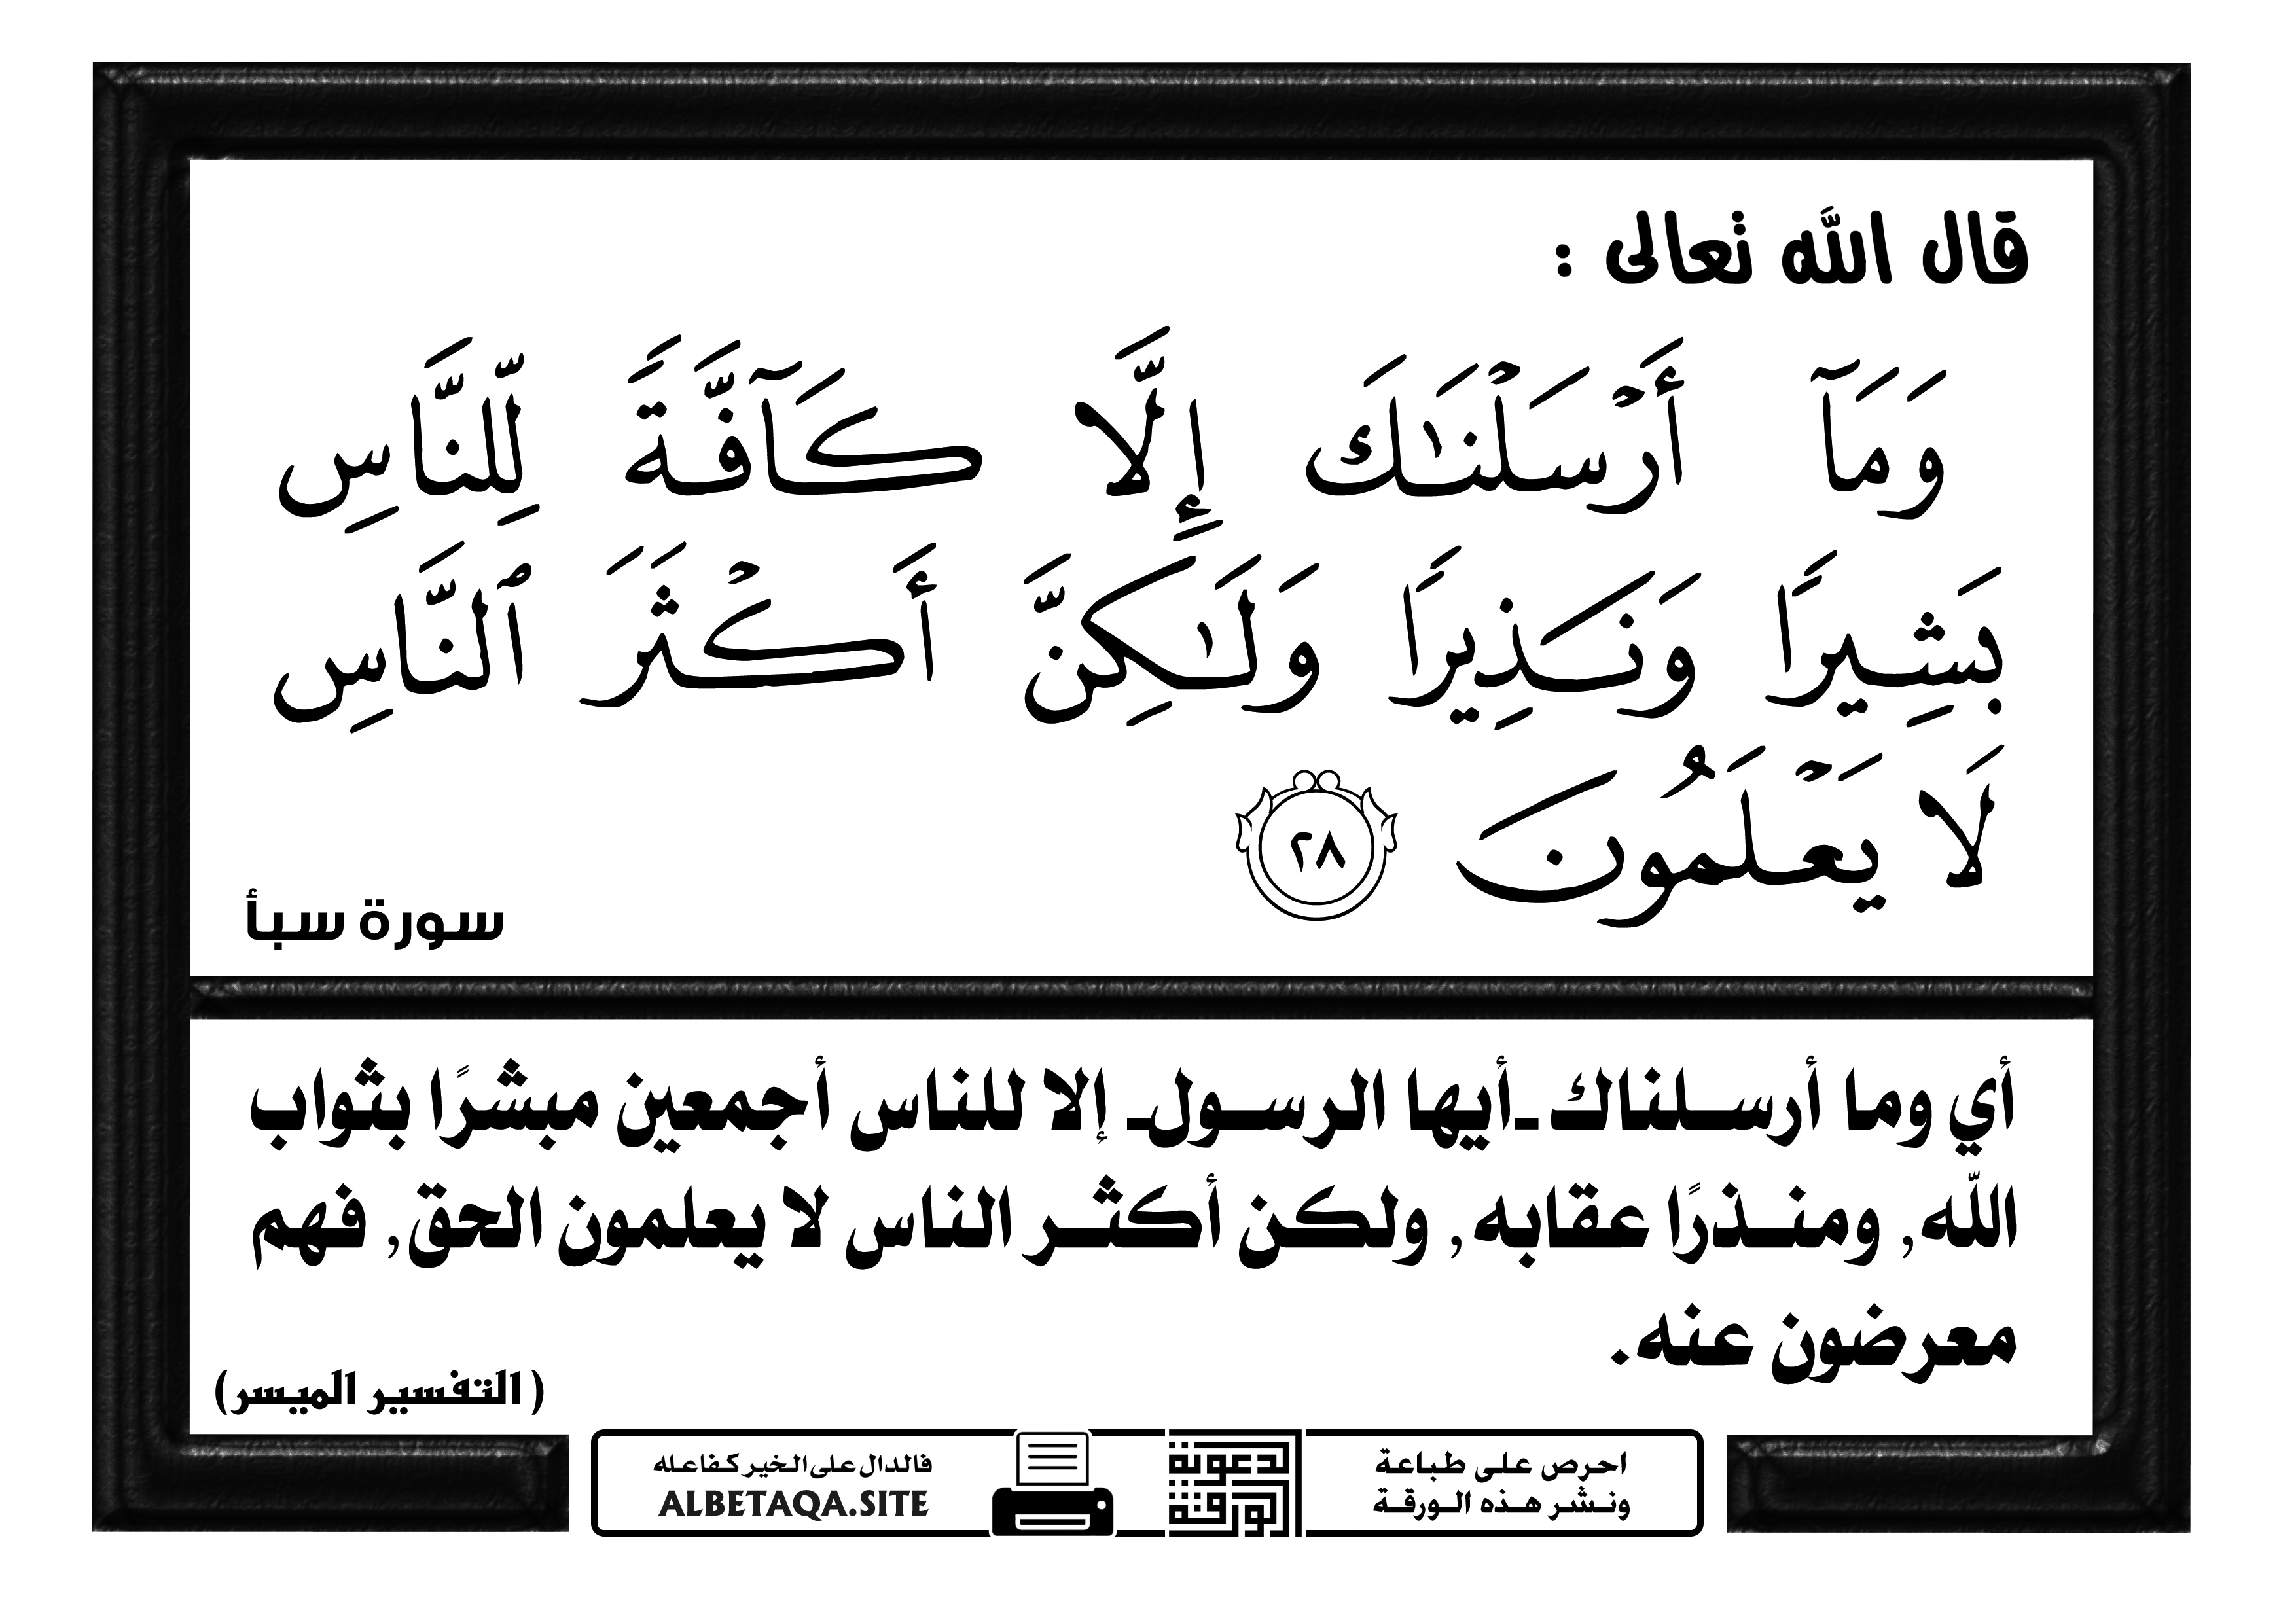 قال الله تعالى :
وَمَآ أَرۡسَلۡنَٰكَ إِلَّا كَآفَّةٗ لِّلنَّاسِ
بَشِيرٗا وَنَذِيرٗا وَلَٰكِنَّ أَكۡثَرَ ٱلنَّاسِ
لَا يَعۡلَمُونَ ٢٨
سورة سبأ
أي وما أرسلناك ـأيها الرسولـ إلا للناس أجمعين مبشرًا بثواب
الله, ومنذرًا عقابه, ولكن أكثر الناس لا يعلمون الحق, فهم
معرضون عنه.
( التفسير الميسر)
احرص على طباعة
ونشر هذه الورقة
الدعوية
الورقة
فالدال على الخير كفاعله
ALBETAQA.SITE